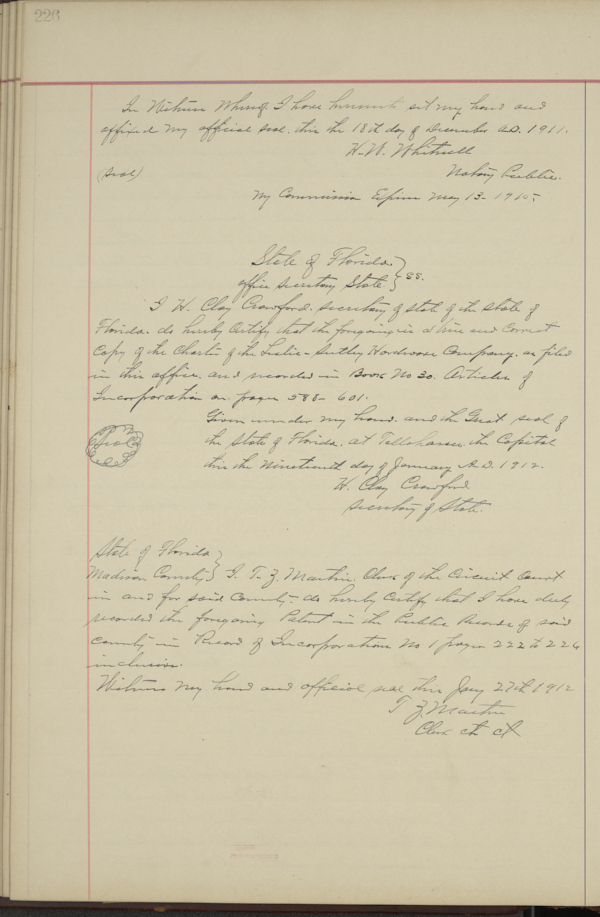 226
In Witness Whereof I have hereunto set my hand and
affixed my official seal. this the 18th day of December A.D. 1911.
H. W. Whitnell
(Seal) Notary Public.
My Commission Expires May 13 - 1915
State of Florida }
office Secretary State } SS.
I H. Clay Crawford. Secretary of State of the State of
Florida. do hereby Certify that the foregoing is a true and Correct
Copy of the Charter of the Hardware Company. as filed
in this office. and recorded in Book No 30. Articles of
Incorporation on pages 588 - 601.
Given under my hand. and the Great seal of
(Seal) the State of Florida. at Tallahassee. the Capital
this the Nineteenth day of January A.D. 1912.
H. Clay Crawford.
Secretary of State.
State of Florida }
Madison County } I. T. Z. Martin. Clerk of the Circuit Court
in and for said County. do hereby Certify that I have duly
recorded the foregoing Patent in the Public Records of said
County in Record of Incorporation No 1 pages 222 to 226
inclusive.
Witness my hand and official seal this Jany 27th 1912
T Z. Martin
Clerk ct ct